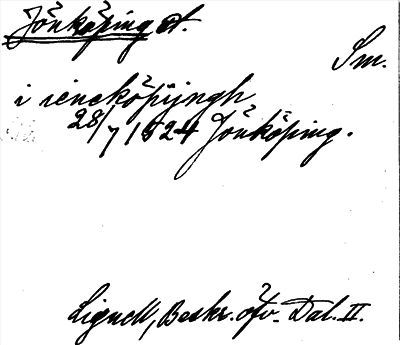 Jönköping st.
Sm.
i iencköpijngh
28/7 1524 Jönköping.
Lignell, Beskr. öfv. Dal. II.